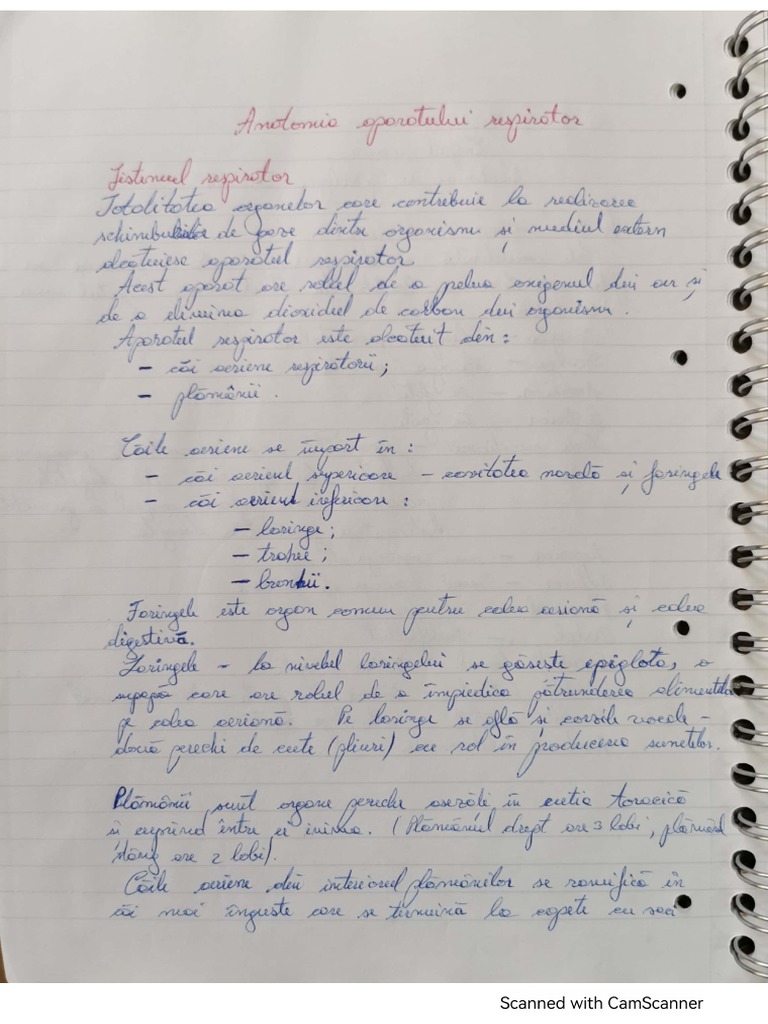 Anatomia aparatului respirator
Sistemul respirator
Totalitatea organelor care contribuie la realizarea
schimbului de gaze dintre organism și mediul extern
alcătuiesc aparatul respirator
Acest aparat are rolul de a prelua oxigenul din aer și
de a elimina dioxidul de carbon din organism.
Aparatul respirator este alcătuit din:
- căi aeriene respiratorii;
- plămânii.
Căile aeriene se împart în:
- căi aeriene superioare - cavitatea nazală și faringele
- căi aeriene inferioare:
- laringe;
- trahee;
- bronhii.
Faringele este organ comun pentru calea aeriană și calea
digestivă.
Laringele - la nivelul laringelui se găsește epiglota, o
supapă care are rolul de a împiedica pătrunderea alimentelor
pe calea aeriană. Pe laringe se află și corzile vocale -
două perechi de cute (pliuri) cu rol în producerea sunetelor.
Plămânii sunt organe pereche așezate în cutia toracică
și cuprind între ei inima. (Plămânul drept are 3 lobi, plămânul
stâng are 2 lobi).
Căile aeriene din interiorul plămânilor se ramifică în
căi mai înguste care se termină la capete cu saci
Scanned with CamScanner